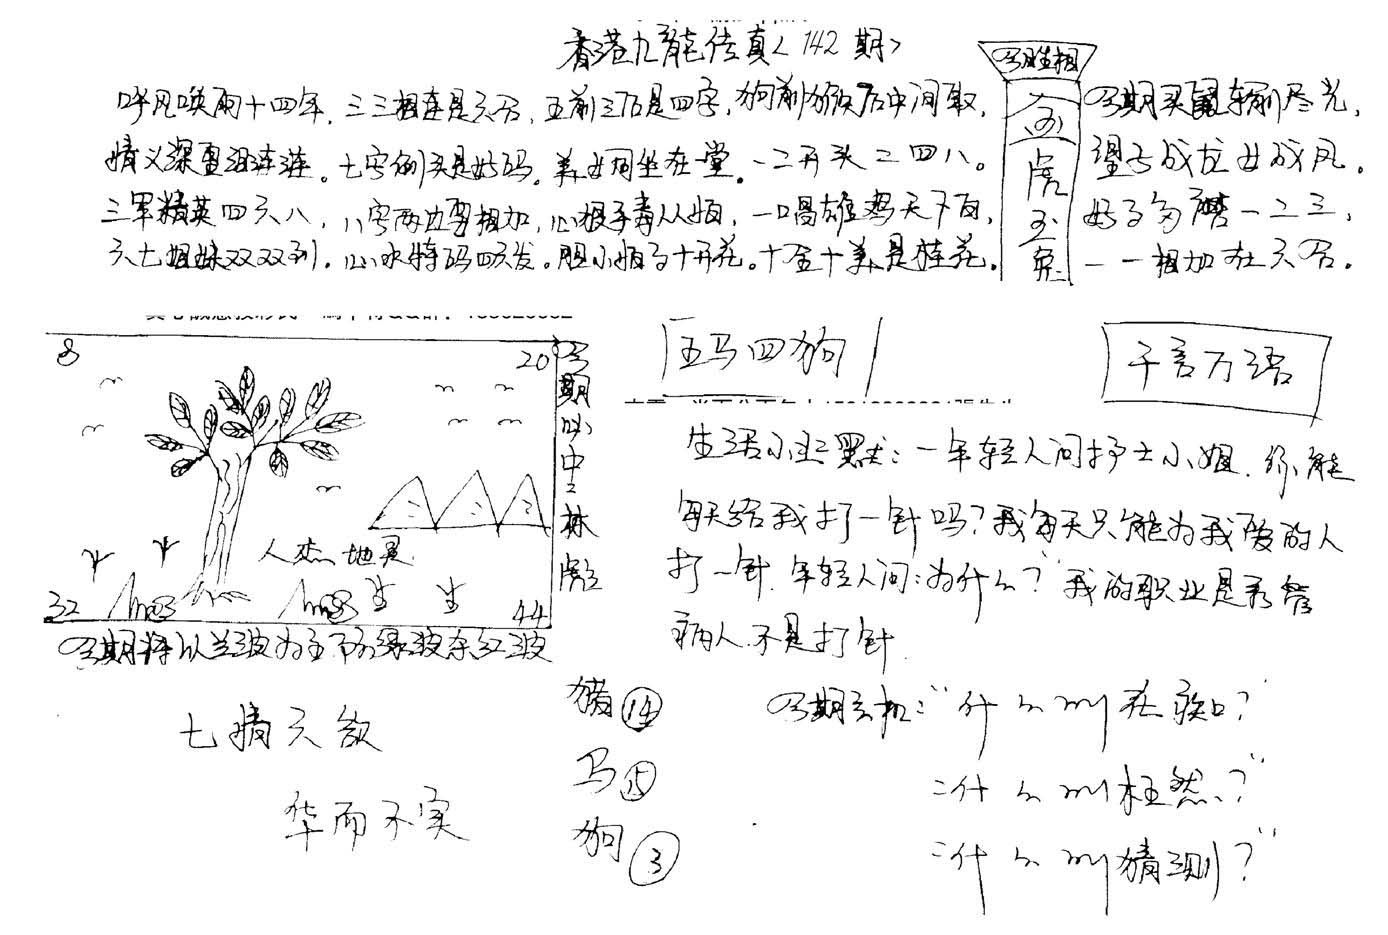 香港九龙传真<142期>
呼风唤雨十四年,三三相连是六合,五前三后是四字,狗前猴后中间取,
情义深重泪涟涟。七字倒头是好码。美女同坐在一堂。一二开头二四八。
三军精英四六八,八字两边要相加,心狠手毒从,一唱雄鸡天下白,
六七姐妹双双到。心水特码四六发。胆小十开花。十全十美是桂花。
今期生相
金
虎
玉
兔
今期买鼠输尽光,
望子成龙女成凤。
好事多磨一二三,
一一相加在六合。
8
20
人杰地灵
32
44
今期以中林彪
今期将以兰波为主下防绿波杂红波
五马四狗
千言万语
生活小幽默:一年轻人问护士小姐.你能
每天给我打一针吗?我每天只能为我爱的人
打一针.年轻人问:为什么?我的职业是看管
病人.不是打针.
七情六欲
华而不实
猪14
马15
狗3
今期玄机:"什么叫
"什么叫枉然?"
"什么叫猜测?"